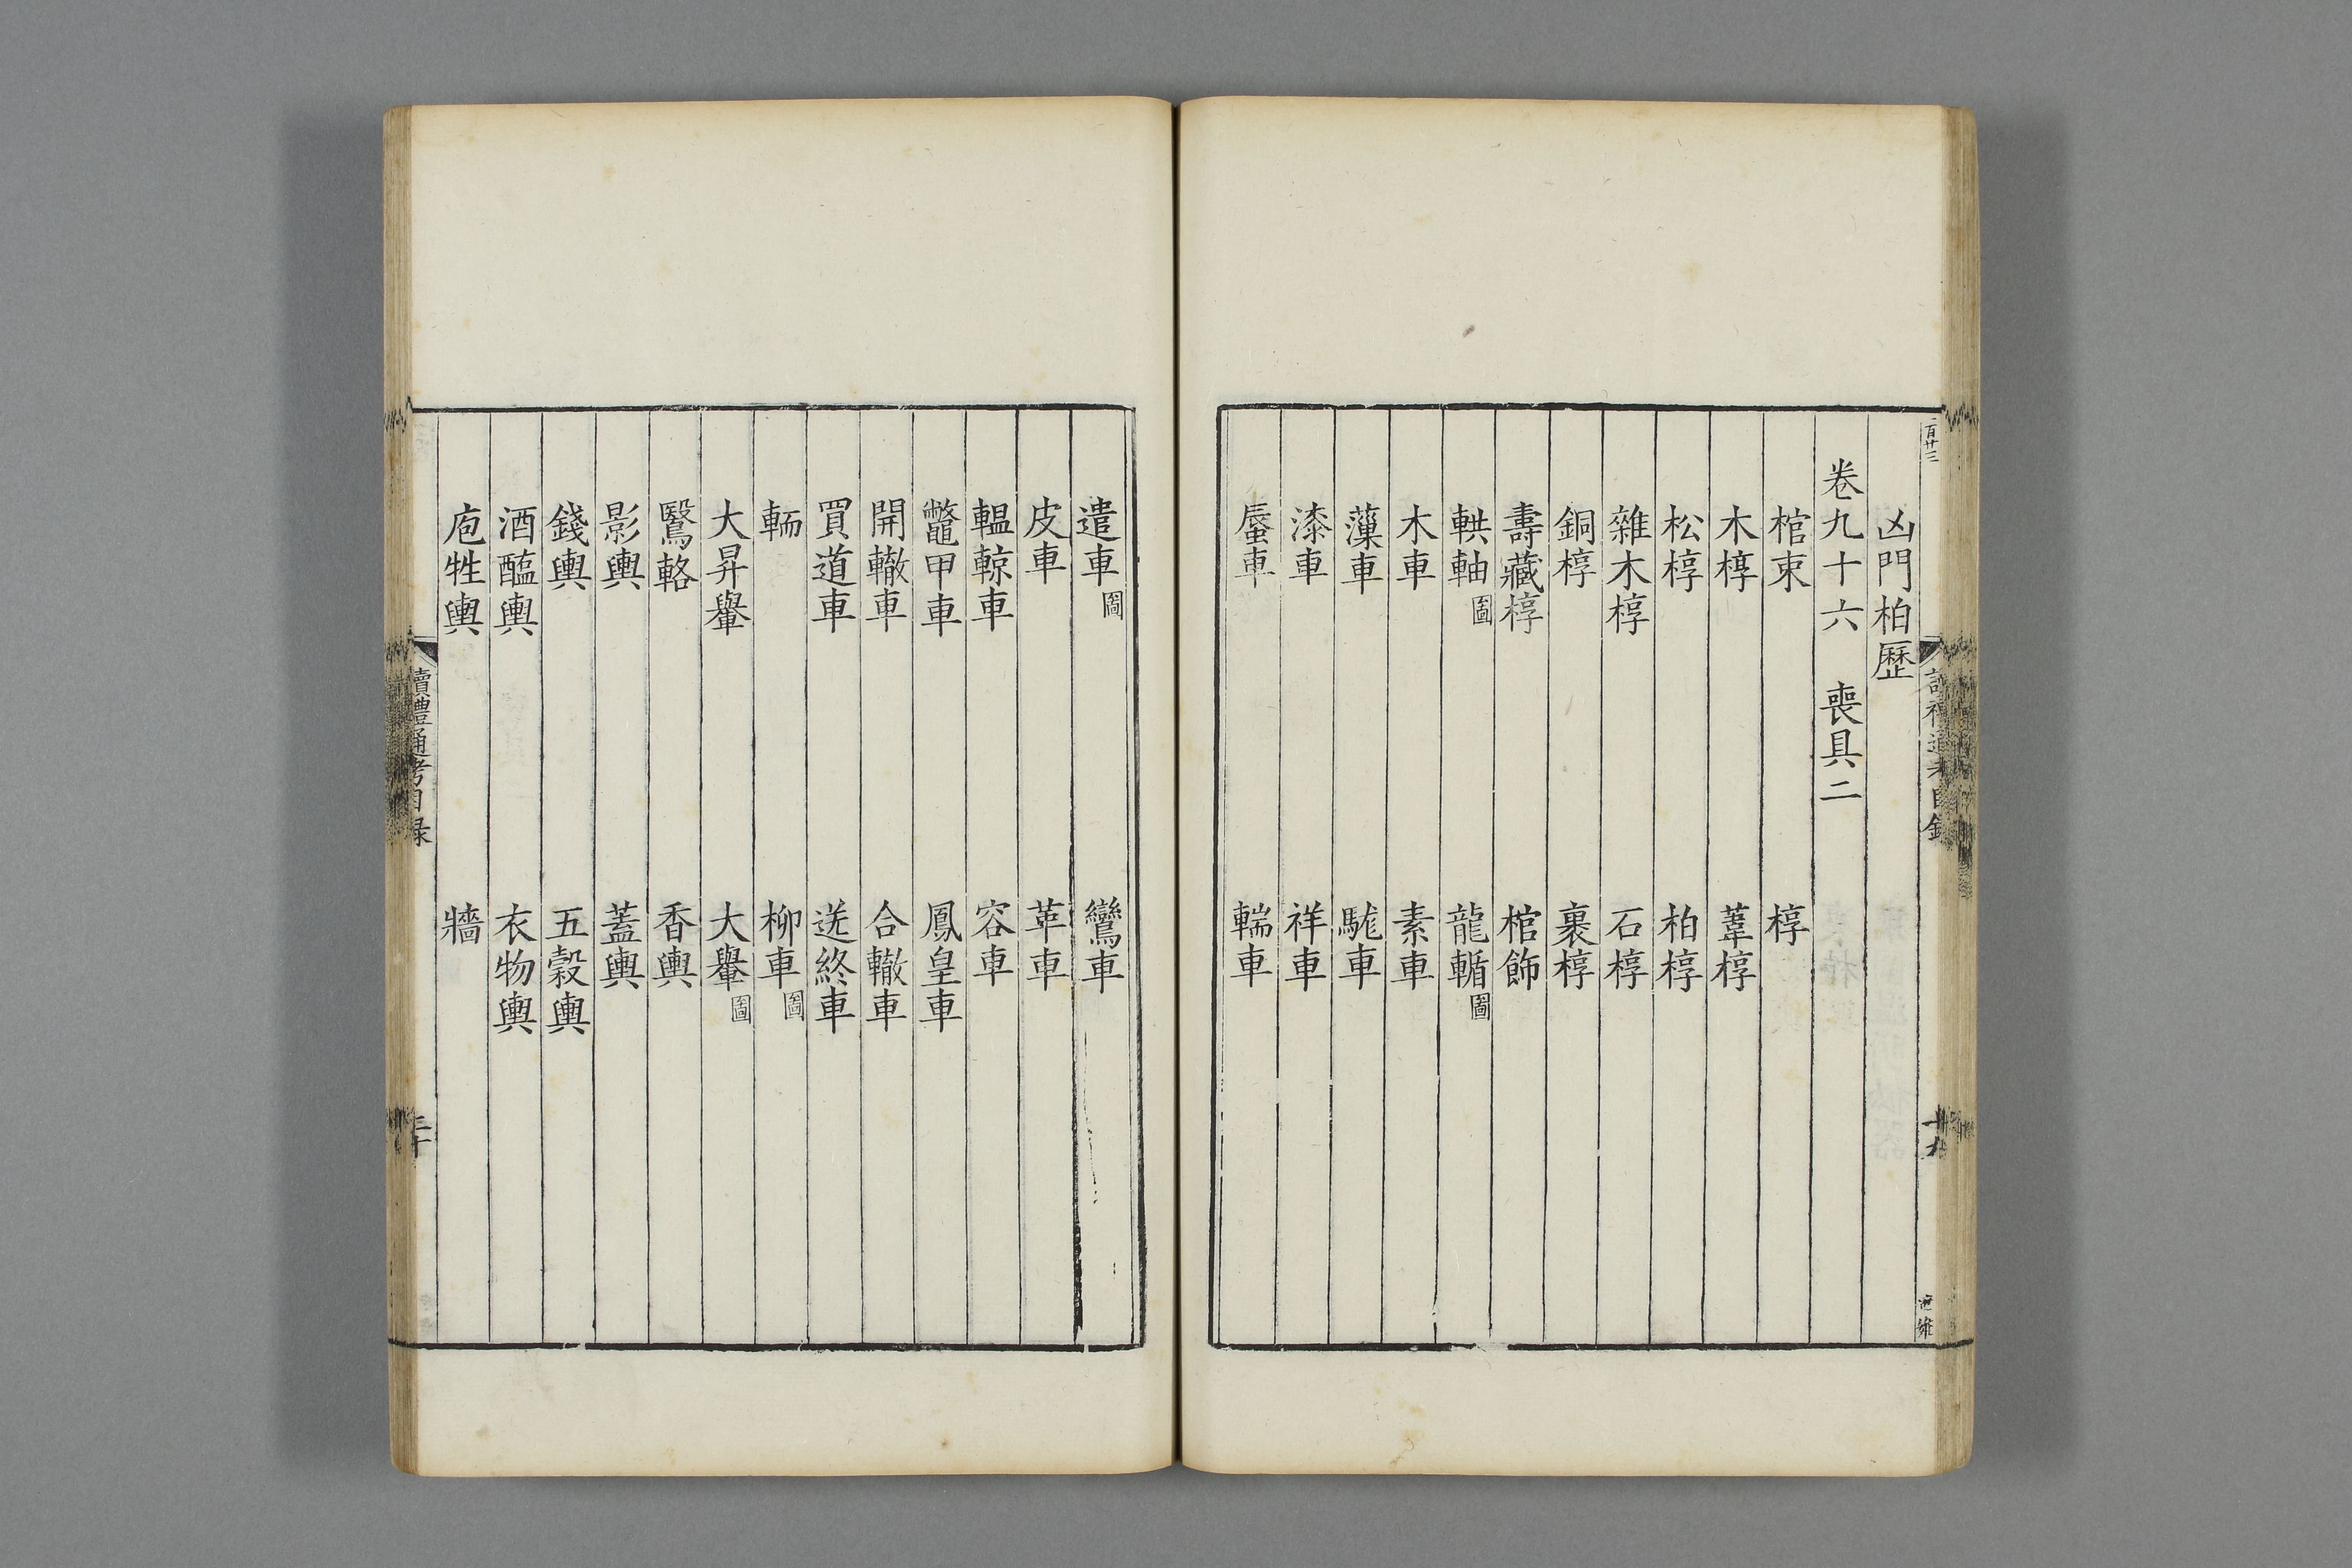 百廿三
讀禮通考目錄
十九
凶門柏歷
卷九十六　喪具二
棺束　椁
木椁　葦椁
松椁　柏椁
雜木椁　石椁
銅椁　裹椁
壽藏椁　棺飾
輁軸圖　龍輴圖
木車　素車
薻車　駹車
漆車　祥車
蜃車　輲車
遣車圖　鸞車
皮車　革車
輼輬車　容車
鼈甲車　鳳皇車
開轍車　合轍車
買道車　送終車
輀　柳車圖
大昇轝　大轝圖
鷖輅　香輿
影輿　蓋輿
錢輿　五穀輿
酒醢輿　衣物輿
庖牲輿　牆
讀禮通考目錄
二十